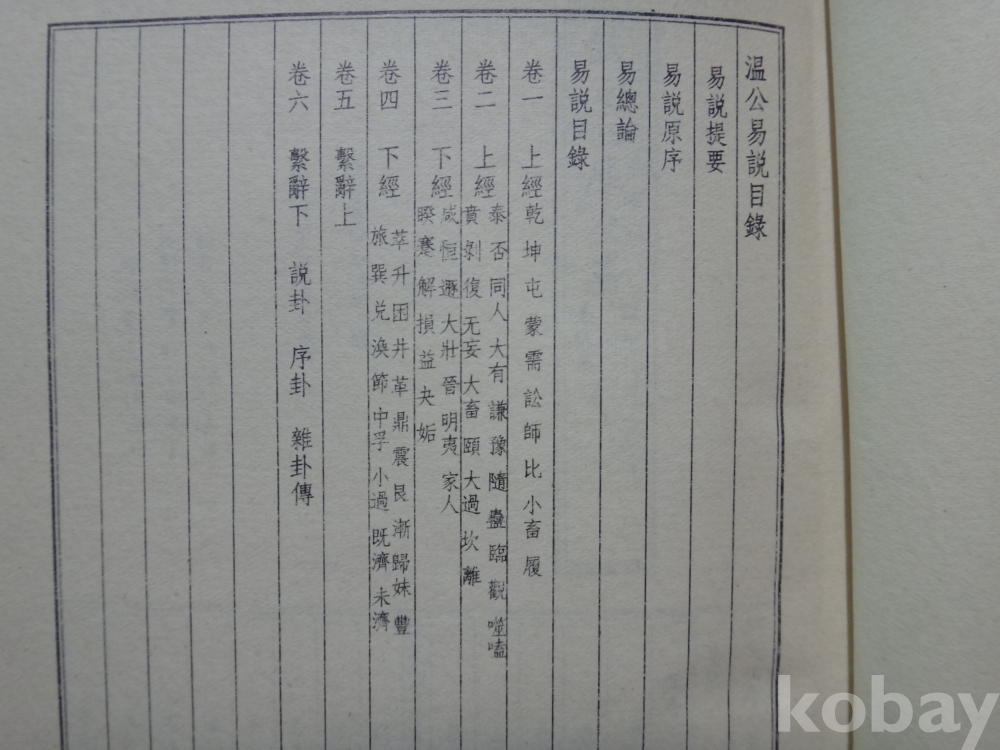 温公易説目錄
易説提要
易説原序
易總論
易説目錄
卷一 上經 乾 坤 屯 蒙 需 訟 師 比 小畜 履
卷二 上經 泰 否 同人 大有 謙 豫 隨 蠱 臨 觀 噬嗑
賁 剝 復 无妄 大畜 頤 大過 坎 離
卷三 下經 咸 恒 遯 大壯 晉 明夷 家人
睽 蹇 解 損 益 夬 姤
卷四 下經 萃 升 困 井 革 鼎 震 艮 漸 歸妹 豐
旅 巽 兌 渙 節 中孚 小過 既濟 未濟
卷五 繫辭上
卷六 繫辭下 説卦 序卦 雜卦傳
kobay